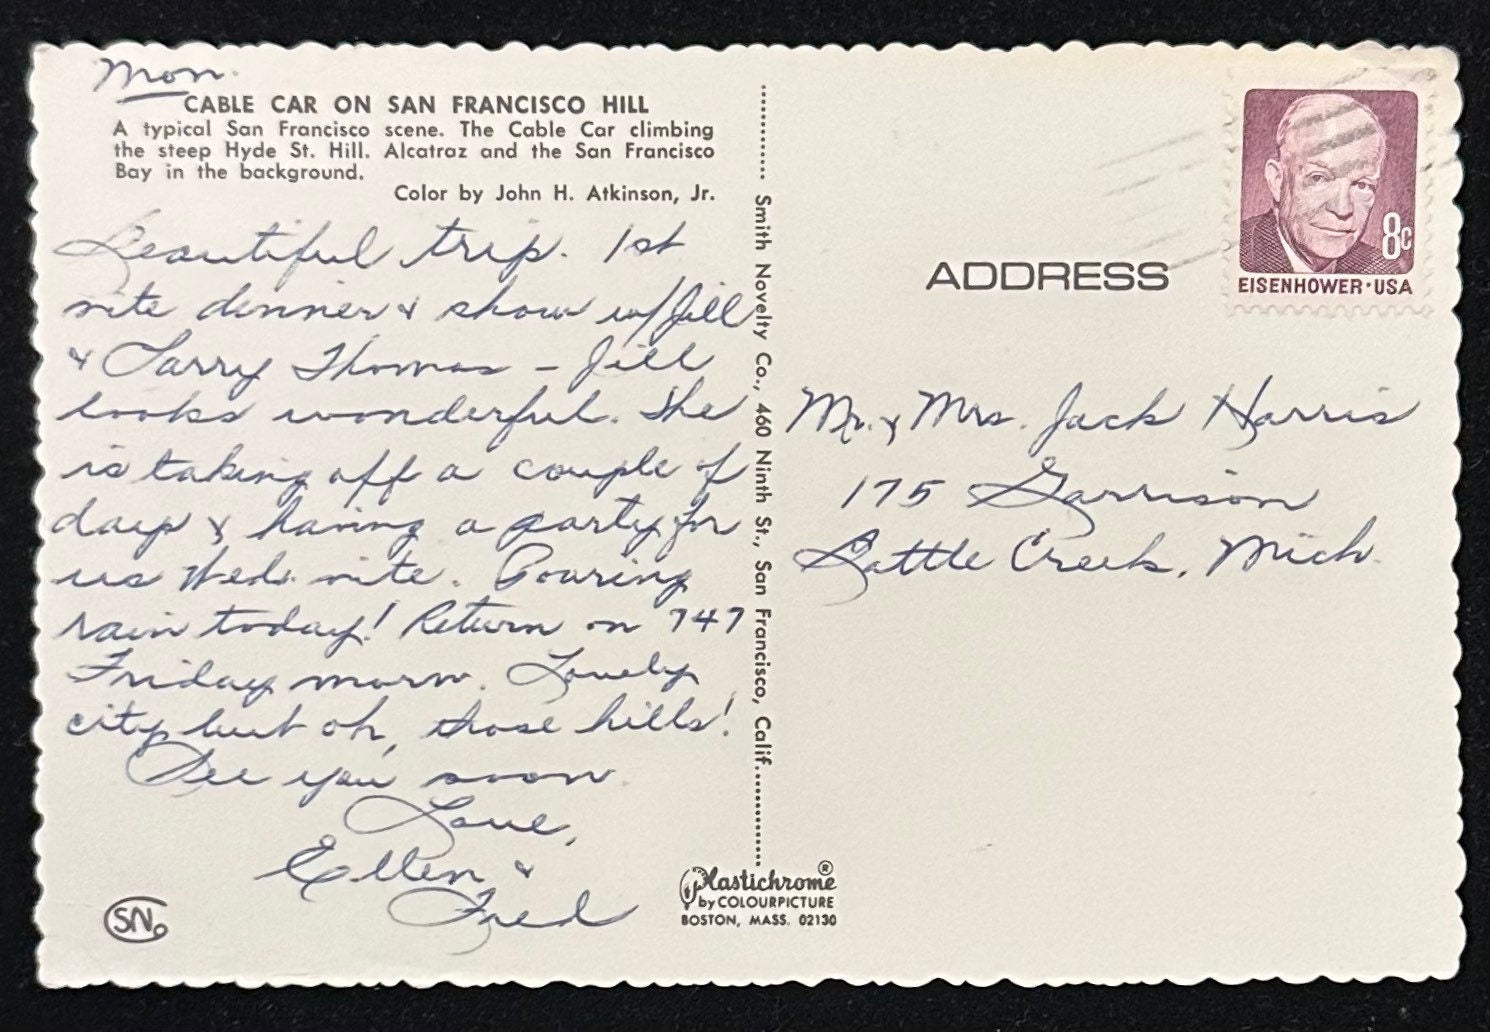 Mon.
CABLE CAR ON SAN FRANCISCO HILL
A typical San Francisco scene. The Cable Car climbing
the steep Hyde St. Hill. Alcatraz and the San Francisco
Bay in the background.
Color by John H. Atkinson, Jr.
Beautiful trip. 1st
nite dinner & show w/Jill
& Larry Thomas - Jill
looks wonderful. She
is taking off a couple of
days & having a party for
us Wed. nite. Pouring
rain today! Return on 747
Friday morn. Lovely
city but oh, those hills!
See you soon.
Love,
Ellen &
Fred
SN
Smith Novelty Co., 460 Ninth St., San Francisco, Calif.
Plastichrome®
by COLOURPICTURE
BOSTON, MASS. 02130
8c
EISENHOWER·USA
ADDRESS
Mr. & Mrs. Jack Harris
175 Garrison
Battle Creek, Mich.